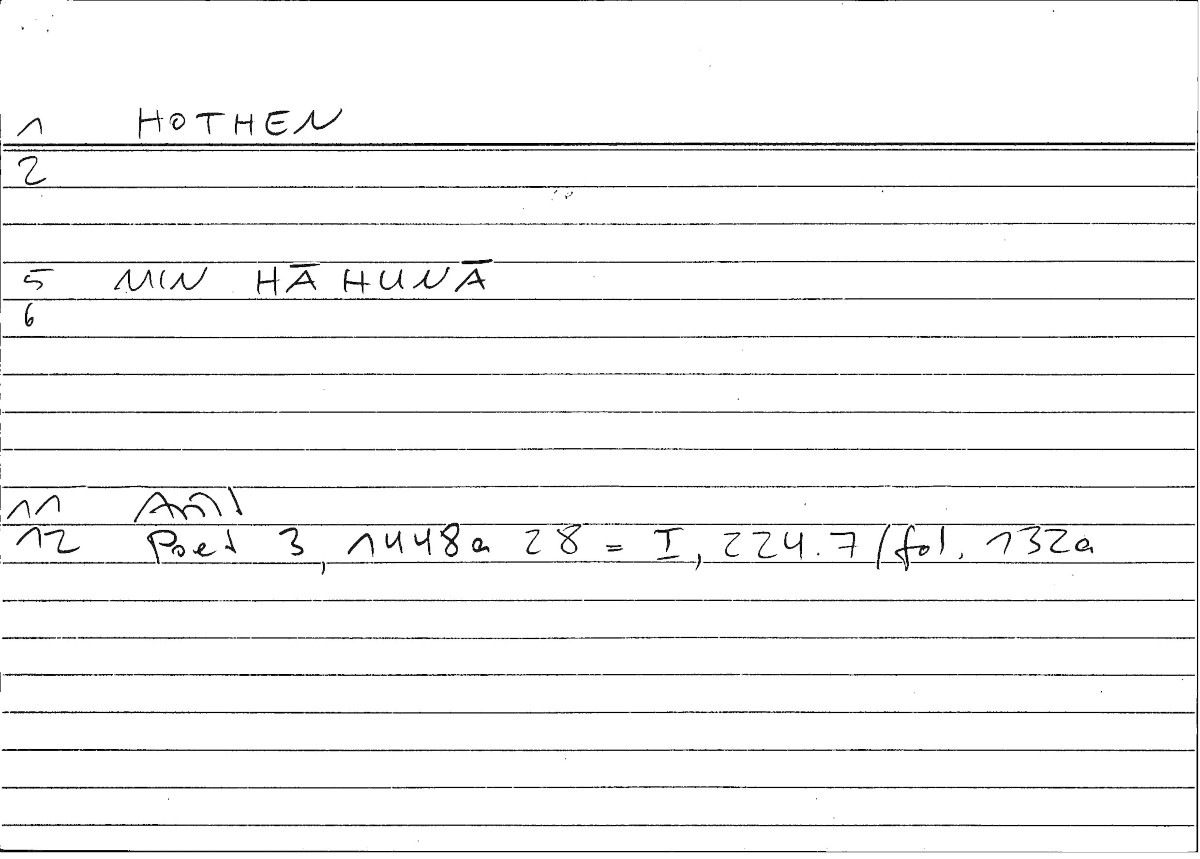 1 HOTHEN
2
5 MIN HĀHUNĀ
6
11 Arist
12 Poet 3, 1448a 28 = I, 224.7/fol. 132a